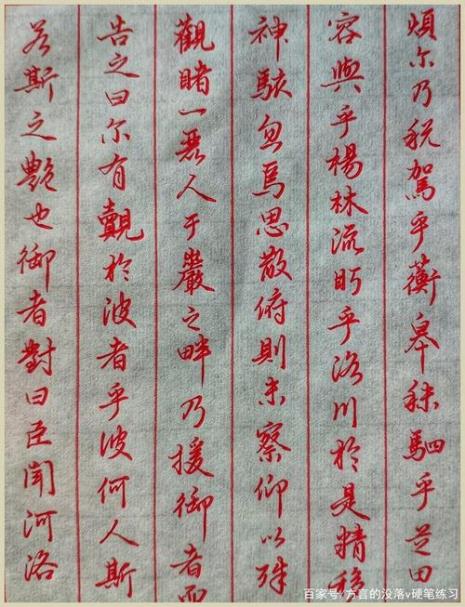 煩尔乃税駕乎蘅皋秣駟乎芝田
容與乎楊林流眄乎洛川於是精移
神駭忽焉思散俯則未察仰以殊
觀睹一麗人于巖之畔乃援御者而
告之曰尔有覿於彼者乎彼何人斯
若斯之艷也御者對曰臣聞河洛
百家号/方言的没落v硬笔练习